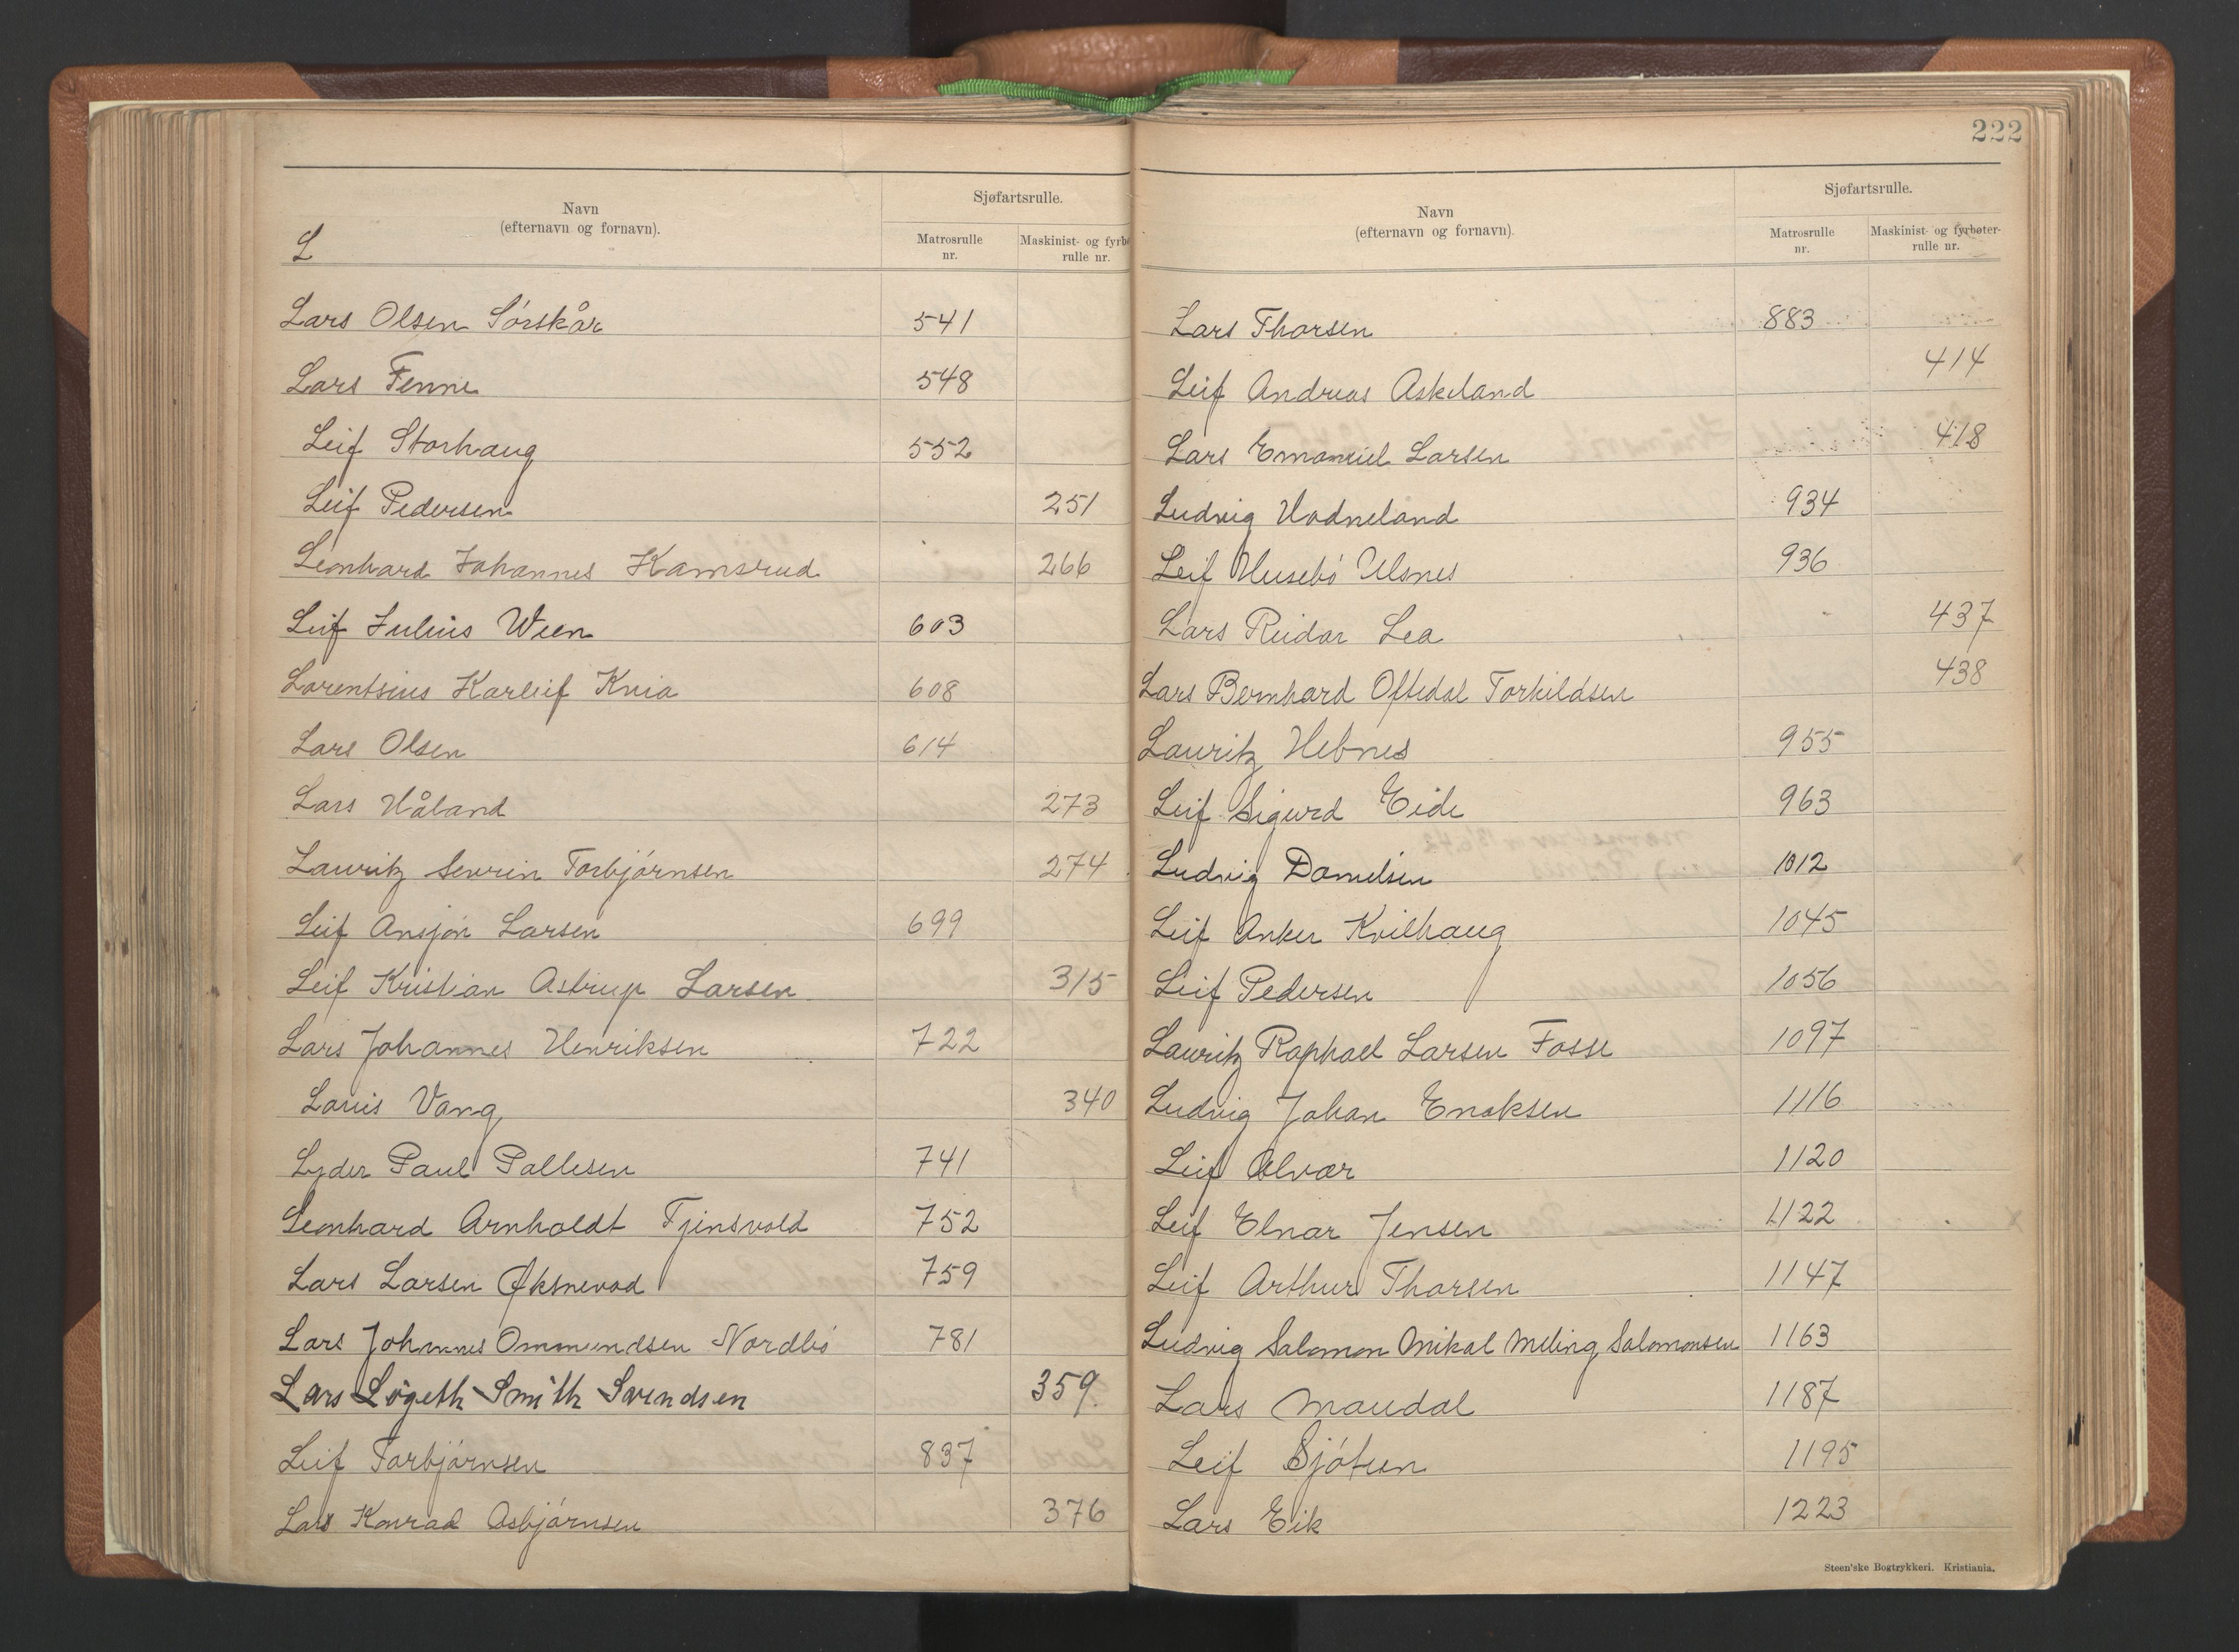 222
L
Navn
(efternavn og fornavn).
Sjøfartsrulle.
Matrosrulle
nr.
Maskinist- og fyrbø
rulle nr.
Lars Olsen Sørskår 541
Lars Fenne 548
Leif Storhaug 552
Leif Pedersen 251
Leonhard Johannes Kamsrud 266
Leif Julius Ween 603
Lorentsius Karleif Kvia 608
Lars Olsen 614
Lars Håland 273
Lauritz Sevrin Torbjørnsen 274
Leif Ansjón Larsen 699
Leif Kristian Astrup Larsen 315
Lars Johannes Henriksen 722
Louis Vang 340
Lyder Paul Pallesen 741
Leonhard Arnholdt Tjinsvold 752
Lars Larsen Øksnevad 759
Lars Johannes Ommundsen Nordbø 781
Lars Løgeth Smith Svendsen 359
Leif Torbjørnsen 837
Lars Konrad Asbjørnsen 376
Navn
(efternavn og fornavn).
Sjøfartsrulle.
Matrosrulle
nr.
Maskinist- og fyrbøter-
rulle nr.
Lars Thorsen 883
Leif Andreas Askeland 414
Lars Emanuel Larsen 418
Ludvig Hodneland 934
Leif Husebø Ulsnes 936
Lars Reidar Lea 437
Lars Bernhard Oftedal Torkildsen 438
Lauritz Hebnes 955
Leif Sigurd Eide 963
Ludvig Danielsen 1012
Leif Anker Kvilhaug 1045
Leif Pedersen 1056
Lauritz Raphael Larsen Fosse 1097
Ludvig Johan Enoksen 1116
Leif Alvær 1120
Leif Elnar Jensen 1122
Leif Arthur Thorsen 1147
Ludvig Salomon Mikal Meling Salomonsen 1163
Lars Maudal 1187
Leif Sjøtun 1195
Lars Eik 1223
Steen'ske Bogtrykkeri. Kristiania.